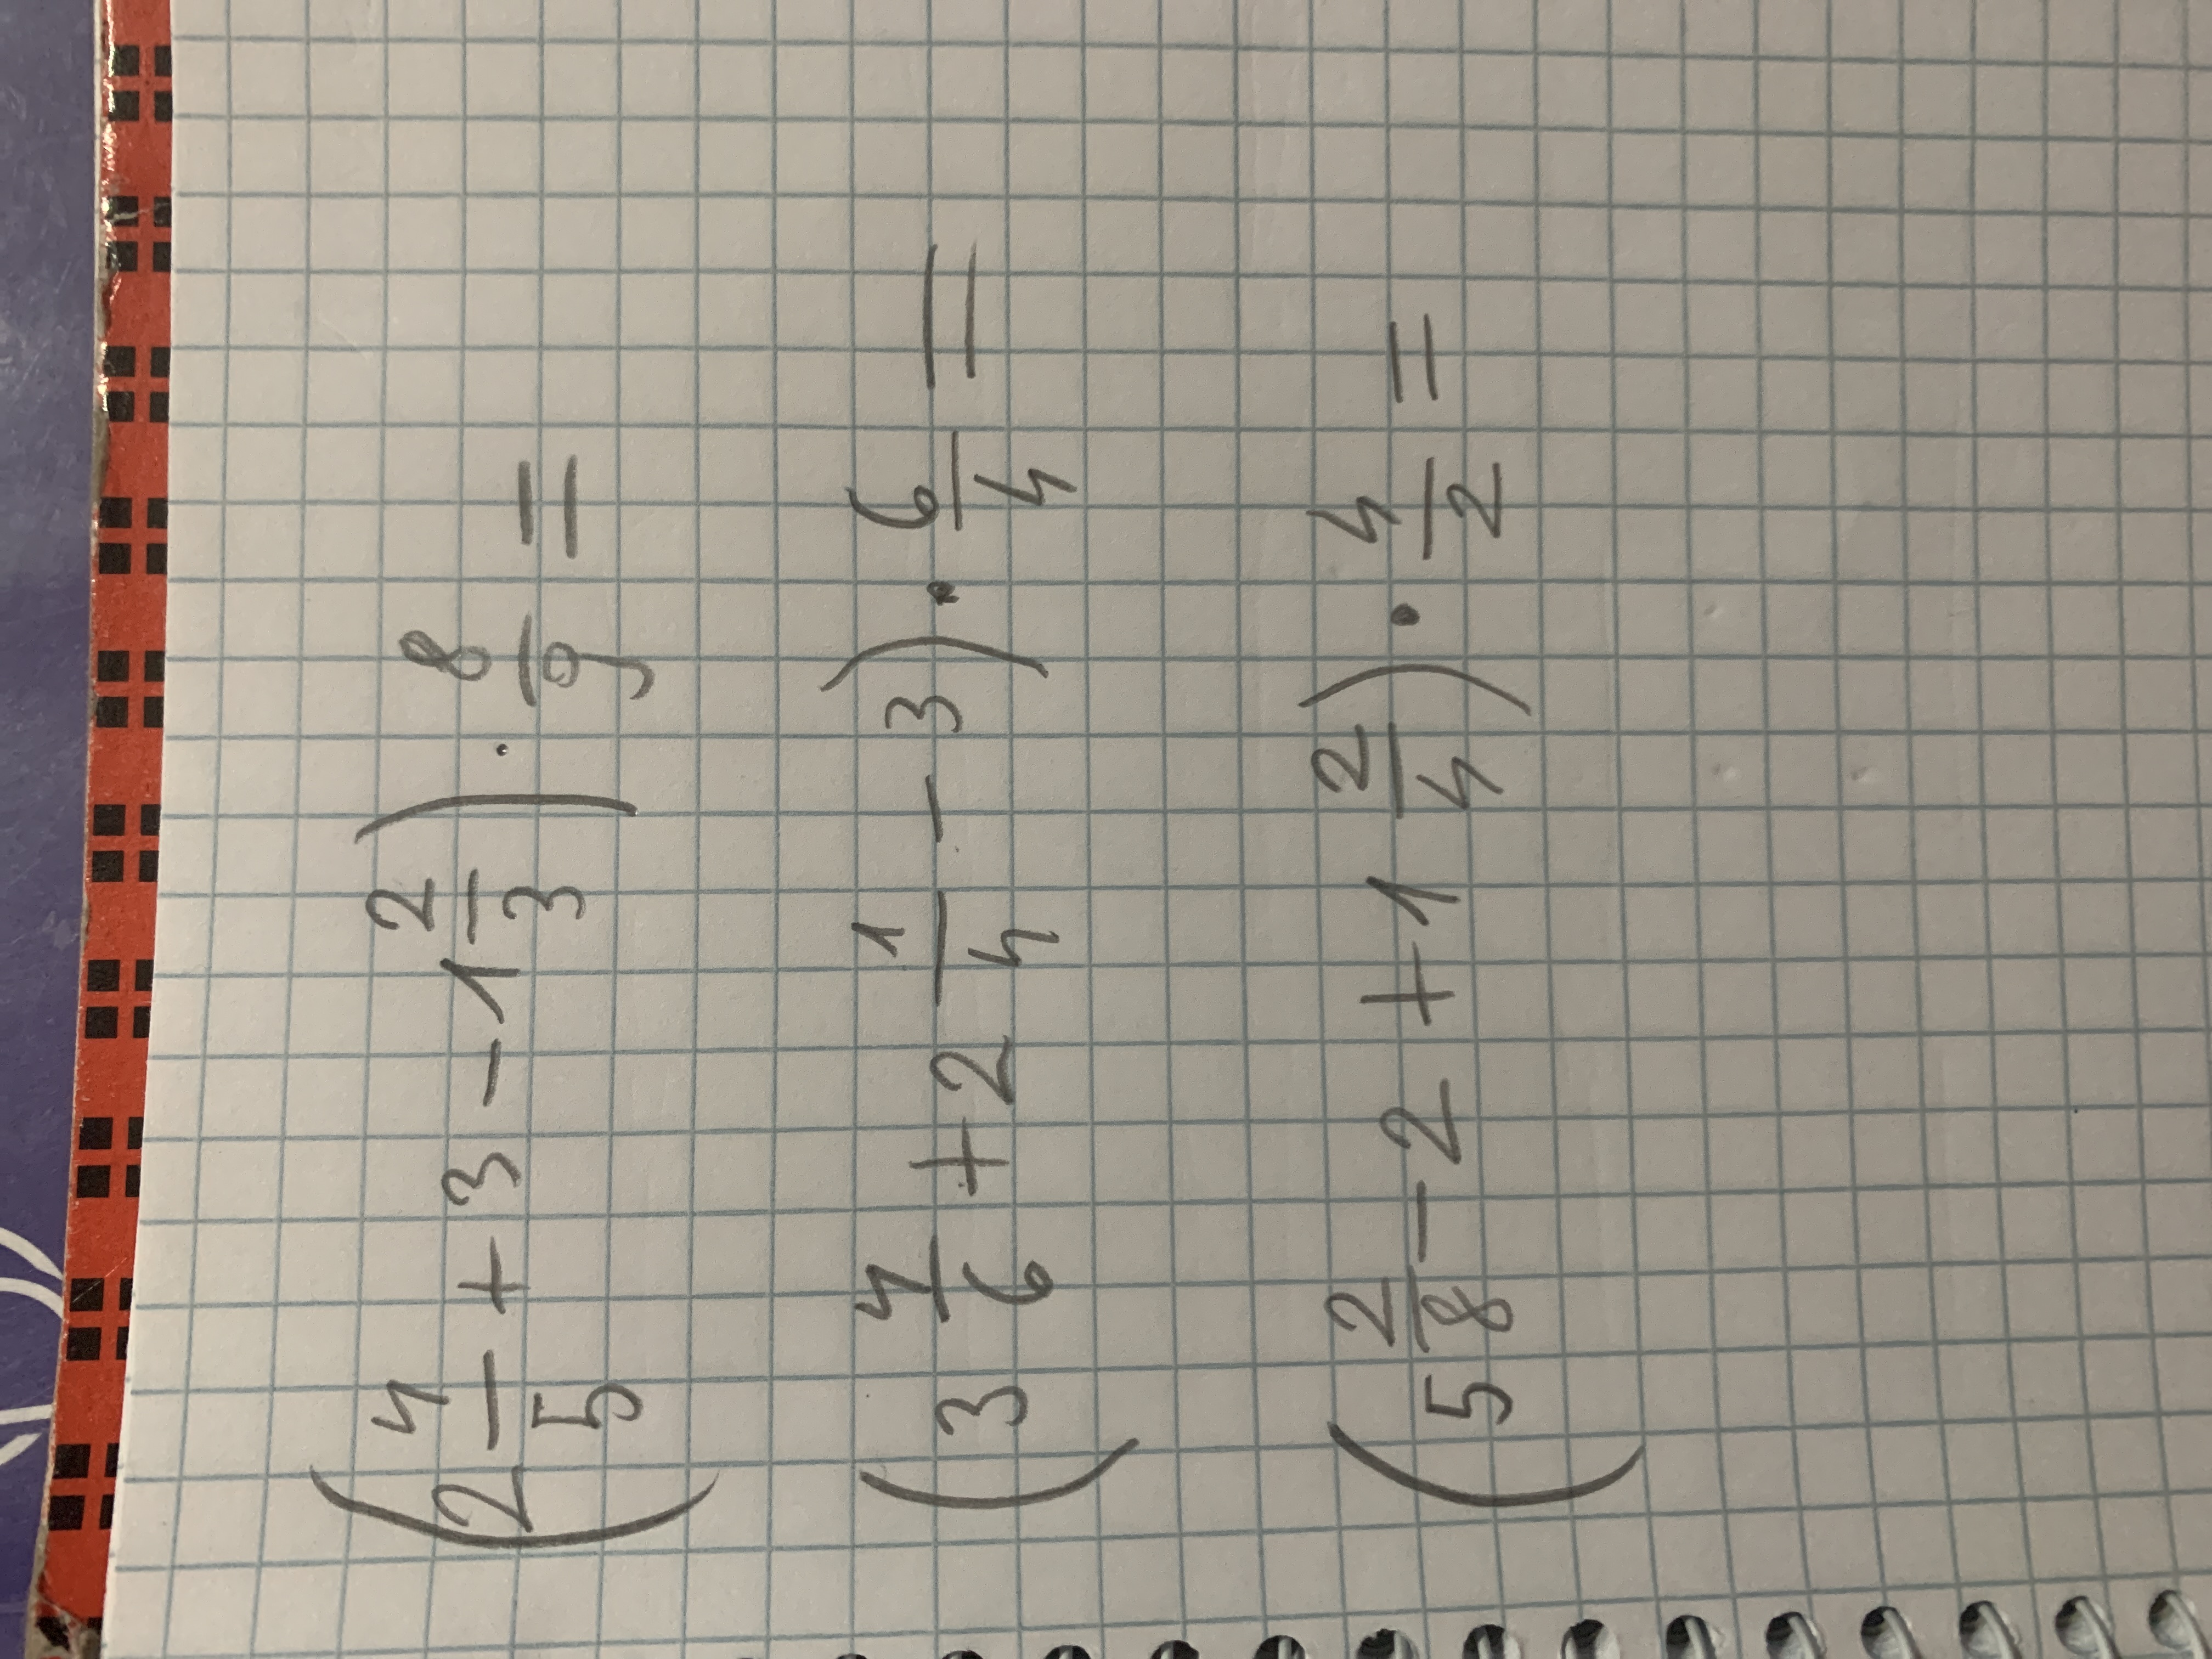 (2 4/5 + 3 - 1 2/3) · 8/9 =
(3 4/6 + 2 1/4 - 3) · 6/4 =
(5 2/8 - 2 + 1 2/4) · 4/2 =